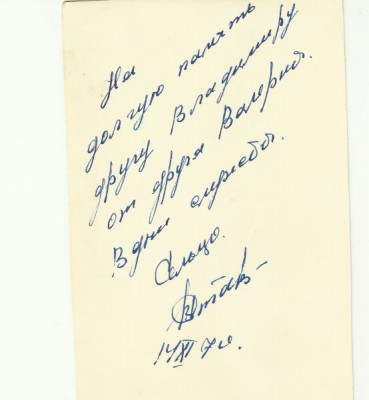 На
долгую память
другу Владимиру
от друга Валерия.
В дни службы.
Сельцо.
14 XI 70г.